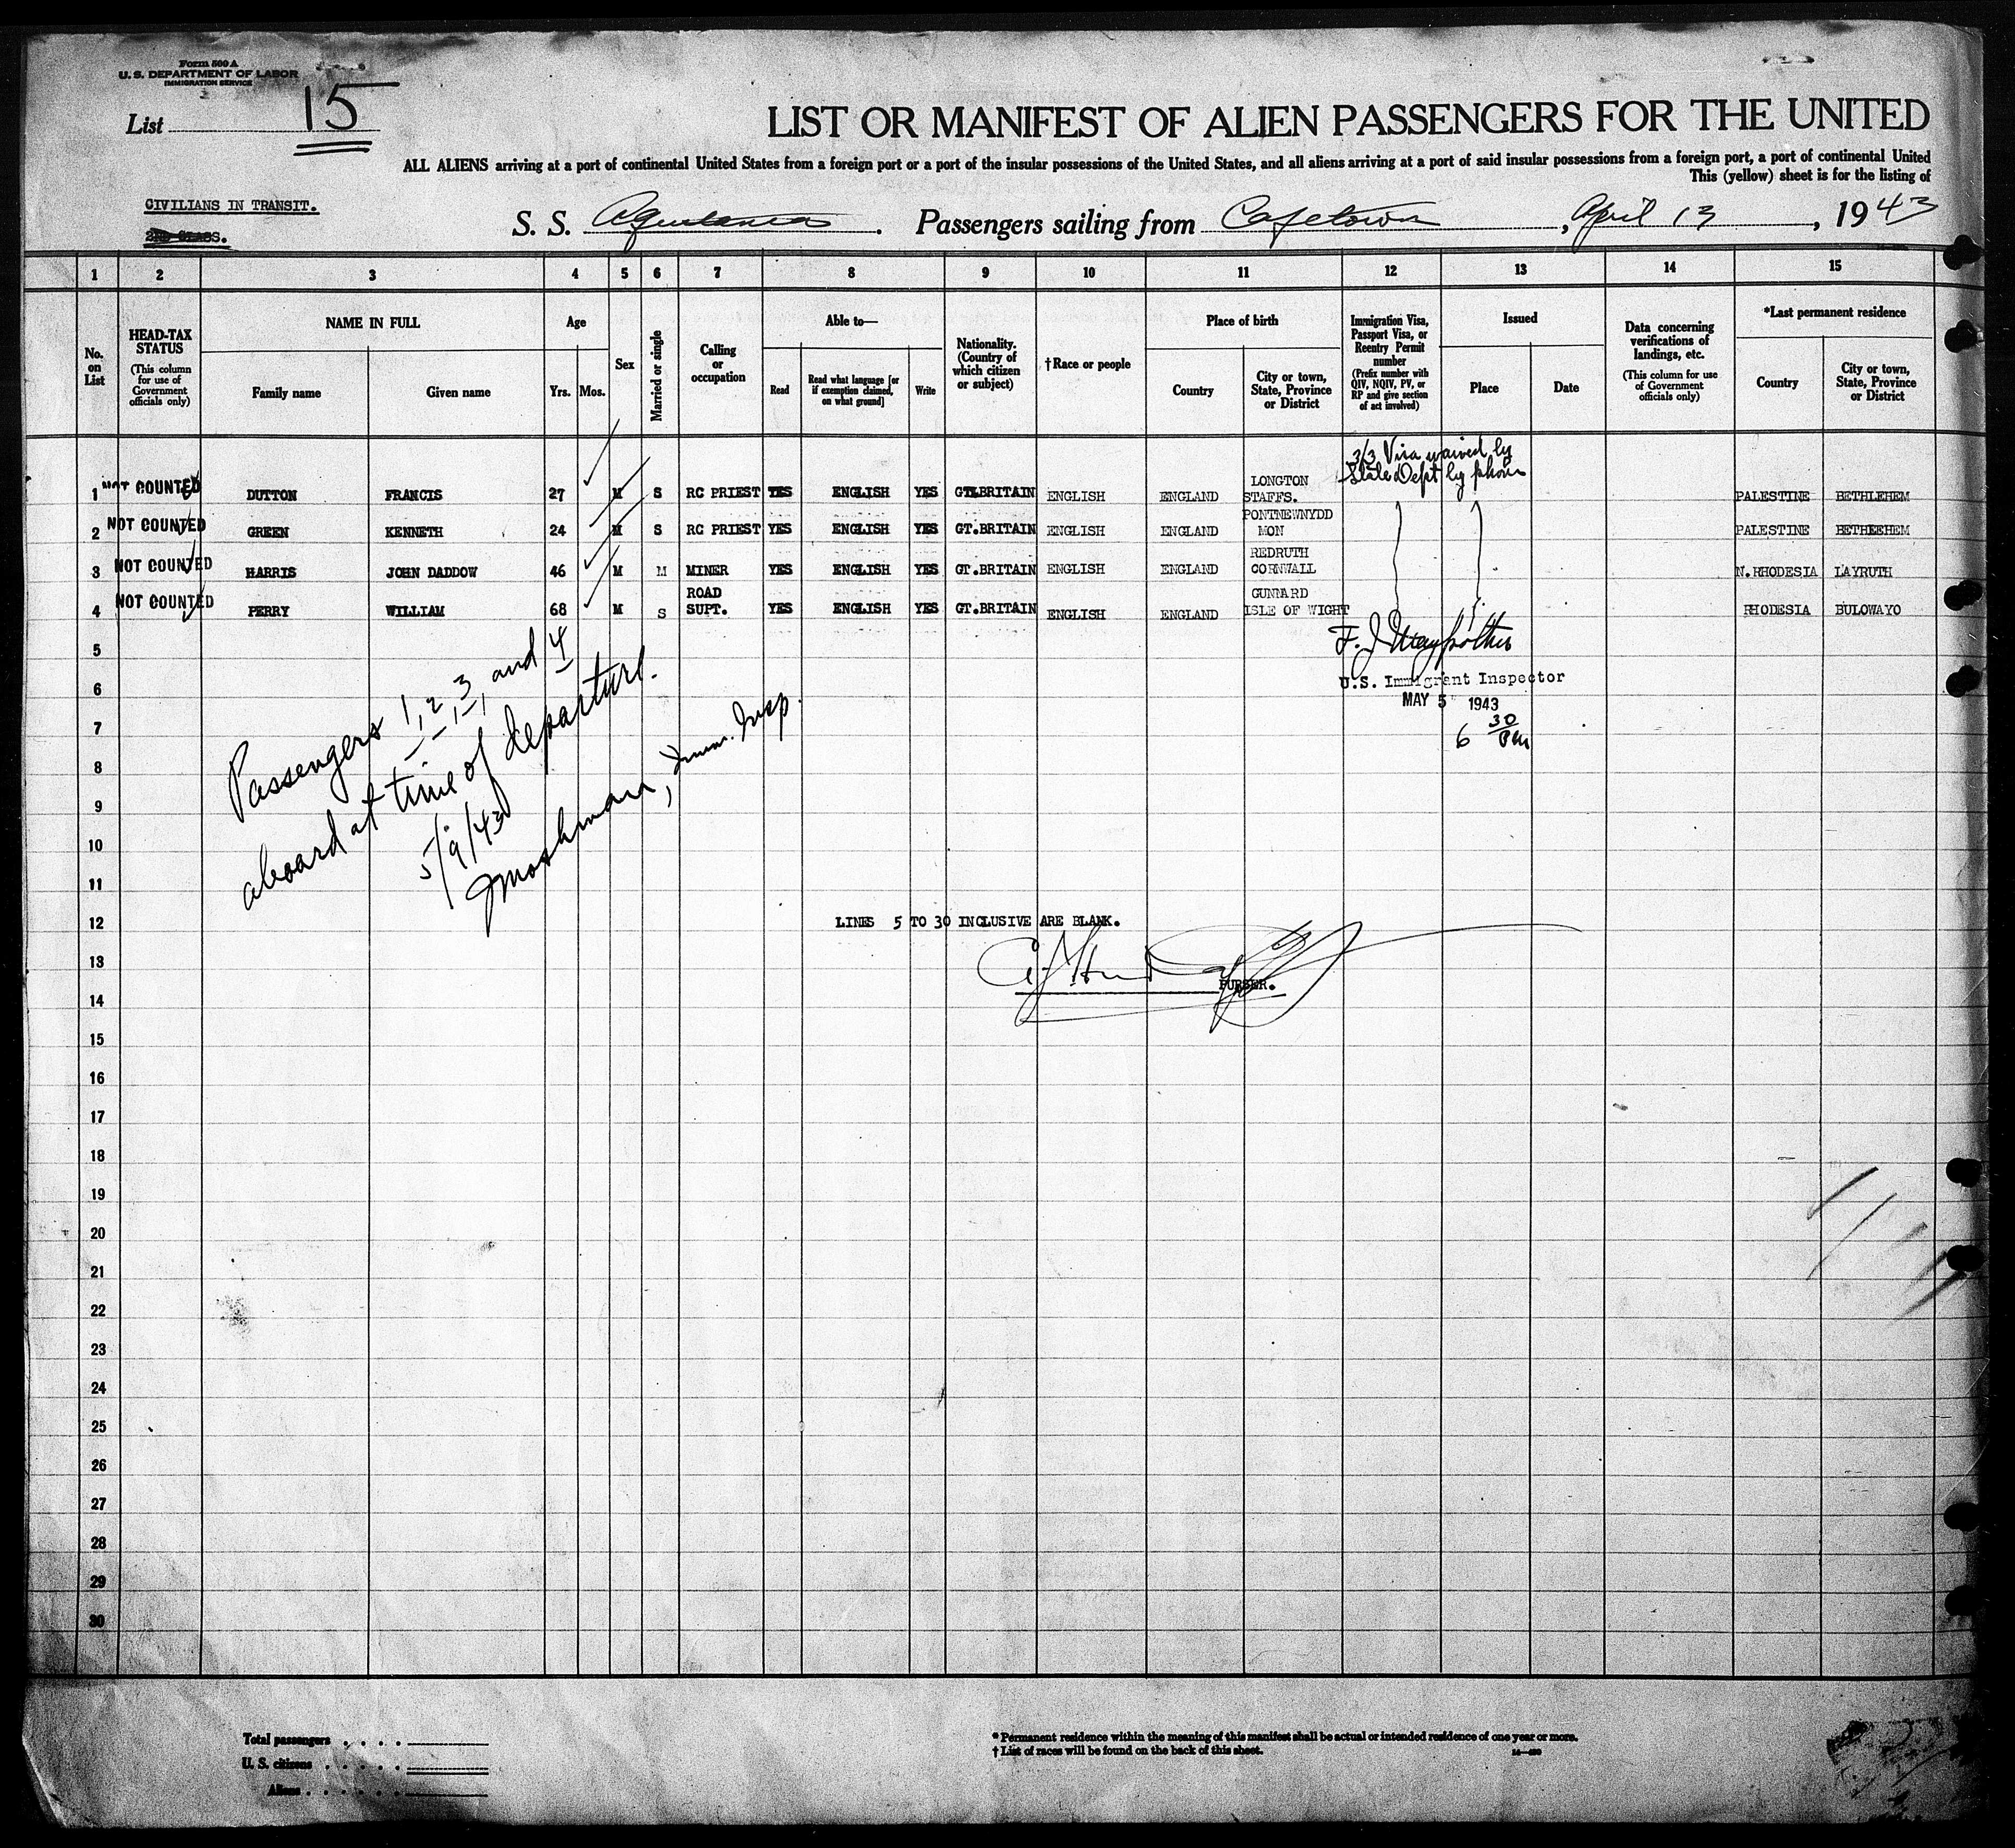 Form 500 A
U. S. DEPARTMENT OF LABOR
IMMIGRATION SERVICE
List 15
LIST OR MANIFEST OF ALIEN PASSENGERS FOR THE UNITED
ALL ALIENS arriving at a port of continental United States from a foreign port or a port of the insular possessions of the United States, and all aliens arriving at a port of said insular possessions from a foreign port, a port of continental United
This (yellow) sheet is for the listing of
CIVILIANS IN TRANSIT.
2ND CLASS.
S. S. Aquitania. Passengers sailing from Capetown, April 13, 1943
1 2 3 4 5 6 7 8 9 10 11 12 13 14 15
No. on List
HEAD-TAX STATUS
(This column for use of Government officials only)
NAME IN FULL
Family name
Given name
Age
Yrs. Mos.
Sex
Married or single
Calling or occupation
Able to—
Read
Read what language [or if exemption claimed, on what ground]
Write
Nationality. (Country of which citizen or subject)
† Race or people
Place of birth
Country
City or town, State, Province or District
Immigration Visa, Passport Visa, or Reentry Permit number
(Prefix number with QIV, NQIV, PV, or RP and give section of act involved)
Issued
Place
Date
Data concerning verifications of landings, etc.
(This column for use of Government officials only)
*Last permanent residence
Country
City or town, State, Province or District
3/3 Visa waived by
State Dept by phone
1 NOT COUNTED DUTTON FRANCIS 27 M S RC PRIEST YES ENGLISH YES GT.BRITAIN ENGLISH ENGLAND LONGTON STAFFS. PALESTINE BETHLEHEM
2 NOT COUNTED GREEN KENNETH 24 M S RC PRIEST YES ENGLISH YES GT.BRITAIN ENGLISH ENGLAND PONTNEWNYDD MON PALESTINE BETHEEHEM
3 NOT COUNTED HARRIS JOHN DADDOW 46 M M MINER YES ENGLISH YES GT.BRITAIN ENGLISH ENGLAND REDRUTH CORNWAIL N.RHODESIA LAYRUTH
4 NOT COUNTED PERRY WILLIAM 68 M S ROAD SUPT. YES ENGLISH YES GT.BRITAIN ENGLISH ENGLAND GUNNARD ISLE OF WIGHT RHODESIA BULOWAYO
5
6
7
8
9
10
11
12
13
14
15
16
17
18
19
20
21
22
23
24
25
26
27
28
29
30
Passengers 1, 2, 3, and 4
aboard at time of departure.
5/9/43
Imm. Insp.
F. J.
U.S. Immigrant Inspector
MAY 5 1943
6 30 PM
LINES 5 TO 30 INCLUSIVE ARE BLANK.
PURSER.
Total passengers
U. S. citizens
Aliens
* Permanent residence within the meaning of this manifest shall be actual or intended residence of one year or more.
† List of races will be found on the back of this sheet.